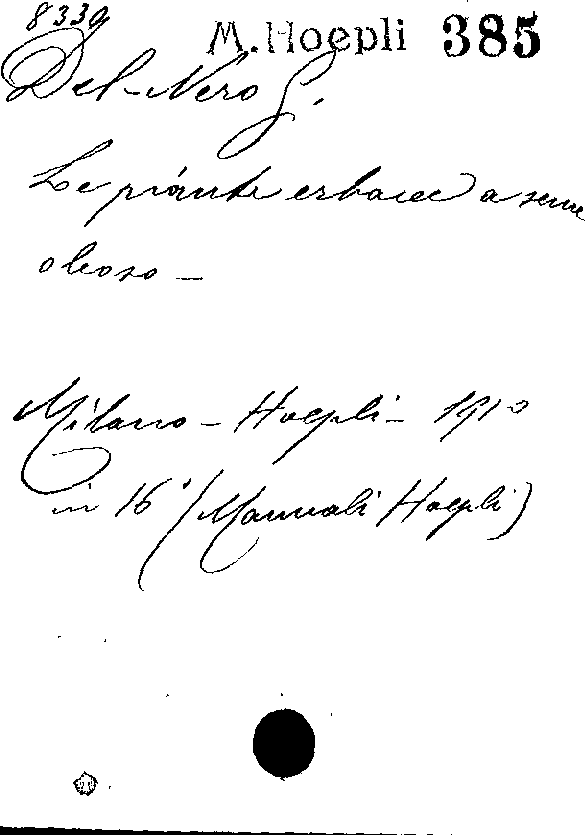 8339
M. Hoepli 385
Del-Nero G.
Le piante erbacee a seme
oleoso -
Milano - Hoepli - 1910
in 16° (Manuali Hoepli)